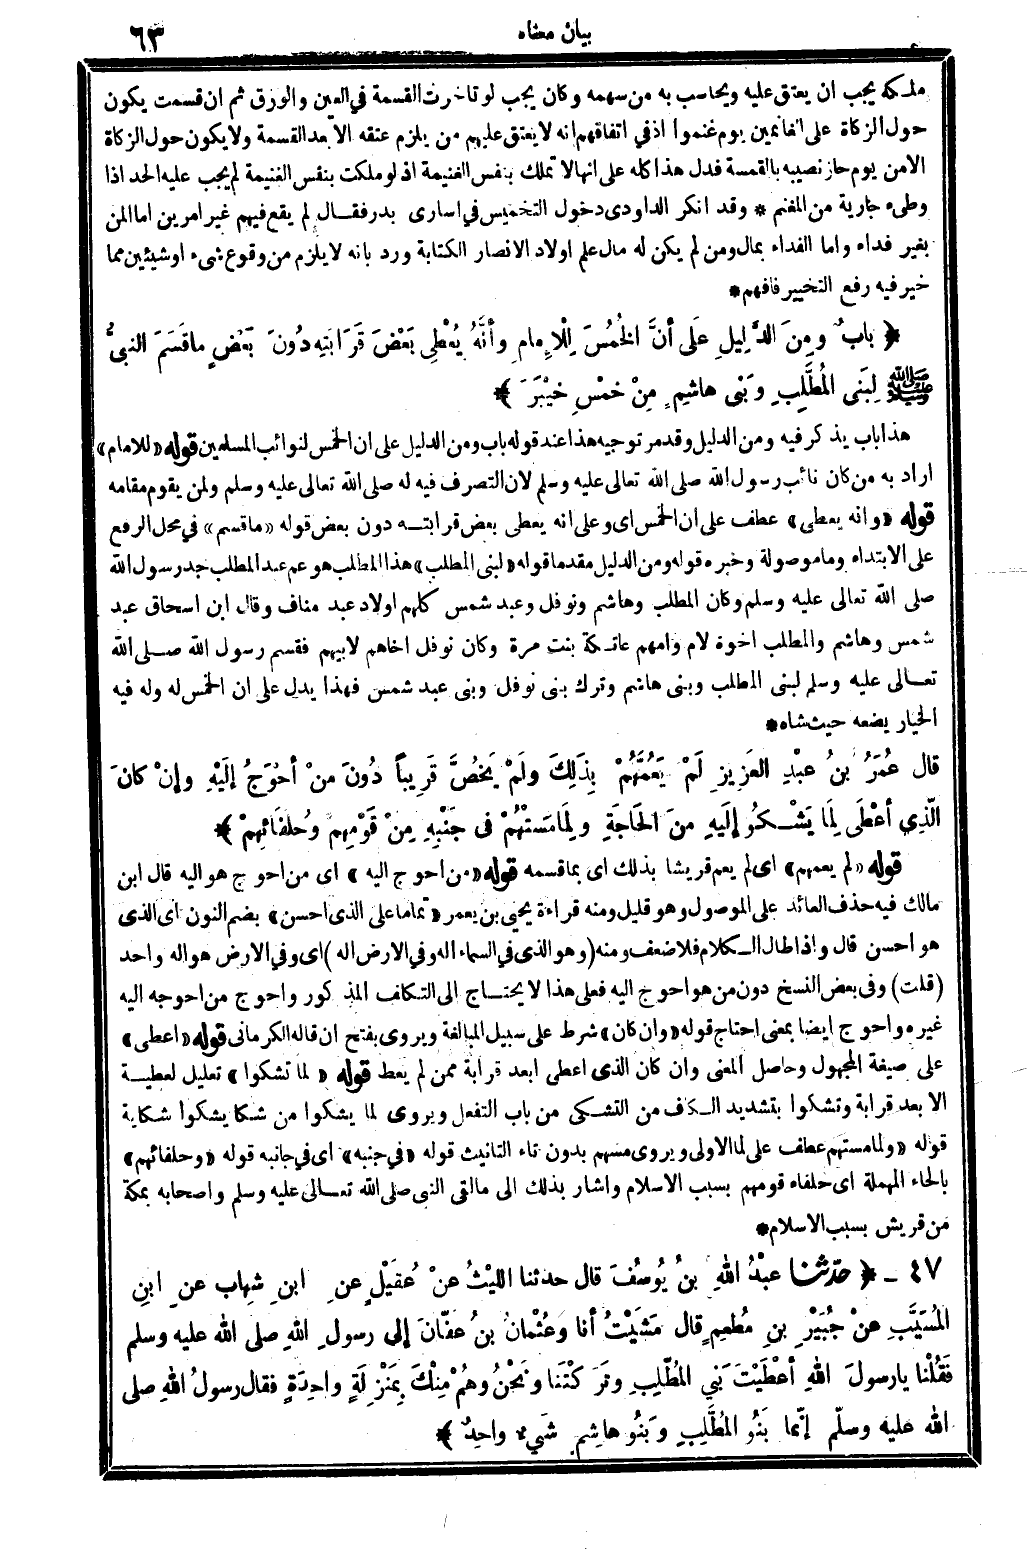 بيان معناه
٦٣
ملكه يجب ان يعتق عليه ويحاسب به من سهمه وكان يجب لو تاخرت القسمة في العين والورق ثم ان قسمت يكون
حول الزكاة على الغانمين يوم غنموا اذ في اتفاقهم انه لا يعتق عليهم من يلزم عتقه الا بعد القسمة ولا يكون حول الزكاة
الا من يوم حاز نصيبه بالقسمة فدل هذا كله على انها لا تملك بنفس الغنيمة اذ لو ملكت بنفس الغنيمة لم يجب عليه الحد اذا
وطىء جارية من المغنم * وقد انكر الداودى دخول التخميس في اسارى بدر فقال لم يقع فيهم غير امرين اما المن
بغير فداء واما الفداء بمال ومن لم يكن له مال علم اولاد الانصار الكتابة ورد بانه لا يلزم من وقوع شىء او شيئين مما
خير فيه رفع التخيير فافهم *
﴿ بابٌ ومِنَ الدَّلِيلِ عَلَى أنَّ الخُمُسَ لِلْإمامِ وأنَّهُ يُعْطِي بَعْضَ قَرَابَتِهِ دُونَ بَعْضٍ ماقَسَمَ النبيُّ
ﷺ لِبَنِي المُطَّلِبِ وَبَنِي هاشِمٍ مِنْ خُمْسِ خَيْبَرَ ﴾
هذا باب يذكر فيه ومن الدليل وقد مر توجيه هذا عند قوله باب ومن الدليل على ان الخمس لنوائب المسلمين قوله «للامام»
اراد به من كان نائب رسول الله صلى الله تعالى عليه وسلم لان التصرف فيه له صلى الله تعالى عليه وسلم ولمن يقوم مقامه
قوله «وانه يعطى» عطف على ان الخمس اى وعلى انه يعطى بعض قرابتـه دون بعض قوله «ماقسم» في محل الرفع
على الابتداء وما موصولة وخبره قوله ومن الدليل مقدما قوله «لبنى المطلب» هذا المطلب هو عم عبد المطلب جد رسول الله
صلى الله تعالى عليه وسلم وكان المطلب وهاشم ونوفل وعبد شمس كلهم اولاد عبد مناف وقال ابن اسحاق عبد
شمس وهاشم والمطلب اخوة لام وامهم عاتكة بنت مرة وكان نوفل اخاهم لابيهم فقسم رسول الله صلى الله
تعالى عليه وسلم لبنى المطلب وبنى هاشم وترك بنى نوفل وبنى عبد شمس فهذا يدل على ان الخمس له وله فيه
الخيار يضعه حيث شاء *
قال عُمَرُ بنُ عبْدِ العَزِيزِ لَمْ يَعُمَّهُمْ بِذَلِكَ ولَمْ يَخُصَّ قَرِيباً دُونَ مَنْ أحْوَجُ إلَيْهِ وإنْ كانَ
الَّذِي أعْطَى لِمَا يَشْكُو إلَيهِ مِنَ الحَاجَةِ ولِمَا مَسَّتْهُمْ فِي جَنْبِهِ مِنْ قَوْمِهِمْ وحُلَفَائِهِمْ ﴾
قوله «لم يعمهم» اى لم يعم قريشا بذلك اى بما قسمه قوله «من احوج اليه» اى من احوج هو اليه قال ابن
مالك فيه حذف العائد على الموصول وهو قليل ومنه قراءة يحيى بن يعمر «تماما على الذى احسن» بضم النون اى الذى
هو احسن قال واذا طال الكلام فلا ضعف ومنه (وهو الذى في السماء اله وفي الارض اله) اى وفي الارض هو اله واحد
(قلت) وفى بعض النسخ دون من هو احوج اليه فعلى هذا لا يحتاج الى التكلف المذكور واحوج من احوجه اليه
غيره واحوج ايضا بمعنى احتاج قوله «وان كان» شرط على سبيل المبالغة ويروى بفتح ان قاله الكرمانى قوله «اعطى»
على صيغة المجهول وحاصل المعنى وان كان الذى اعطى ابعد قرابة ممن لم يعط قوله «لما تشكوا» تعليل لعطيـة
الابعد قرابة وتشكوا بتشديد الكاف من التشكى من باب التفعل ويروى لما يشكوا من شكا يشكوا شكاية
قوله «ولما مستهم عطف على لما الاولى ويروى مسهم بدون تاء التانيث قوله «في جنبه» اى في جانبه قوله «وحلفائهم»
بالحاء المهملة اى حلفاء قومهم بسبب الاسلام واشار بذلك الى مالقى النبى صلى الله تعالى عليه وسلم واصحابه بمكة
من قريش بسبب الاسلام *
٤٧ ـ ﴿ حدّثنا عبْدُ اللهِ بنُ يُوسُفَ قال حدثنا اللَّيْثُ عنْ عُقَيْلٍ عنِ ابنِ شِهابٍ عنِ ابنِ
المُسَيَّبِ عنْ جُبَيْرِ بنِ مُطْعِمٍ قال مَشَيْتُ أنا وعُثْمانُ بنُ عفّانَ إلى رسولِ اللهِ صلى الله عليه وسلم
فَقُلْنا يارسولَ اللهِ أعْطَيْتَ بَنِي المُطَّلِبِ وتَرَكْتَنا ونَحْنُ وهُمْ مِنْكَ بِمَنْزِلَةٍ واحِدَةٍ فقال رسولُ اللهِ صلى
الله عليه وسلّم إنّما بَنُو المُطَّلِبِ وَبَنُو هاشِمٍ شَيْءٌ واحِدٌ ﴾